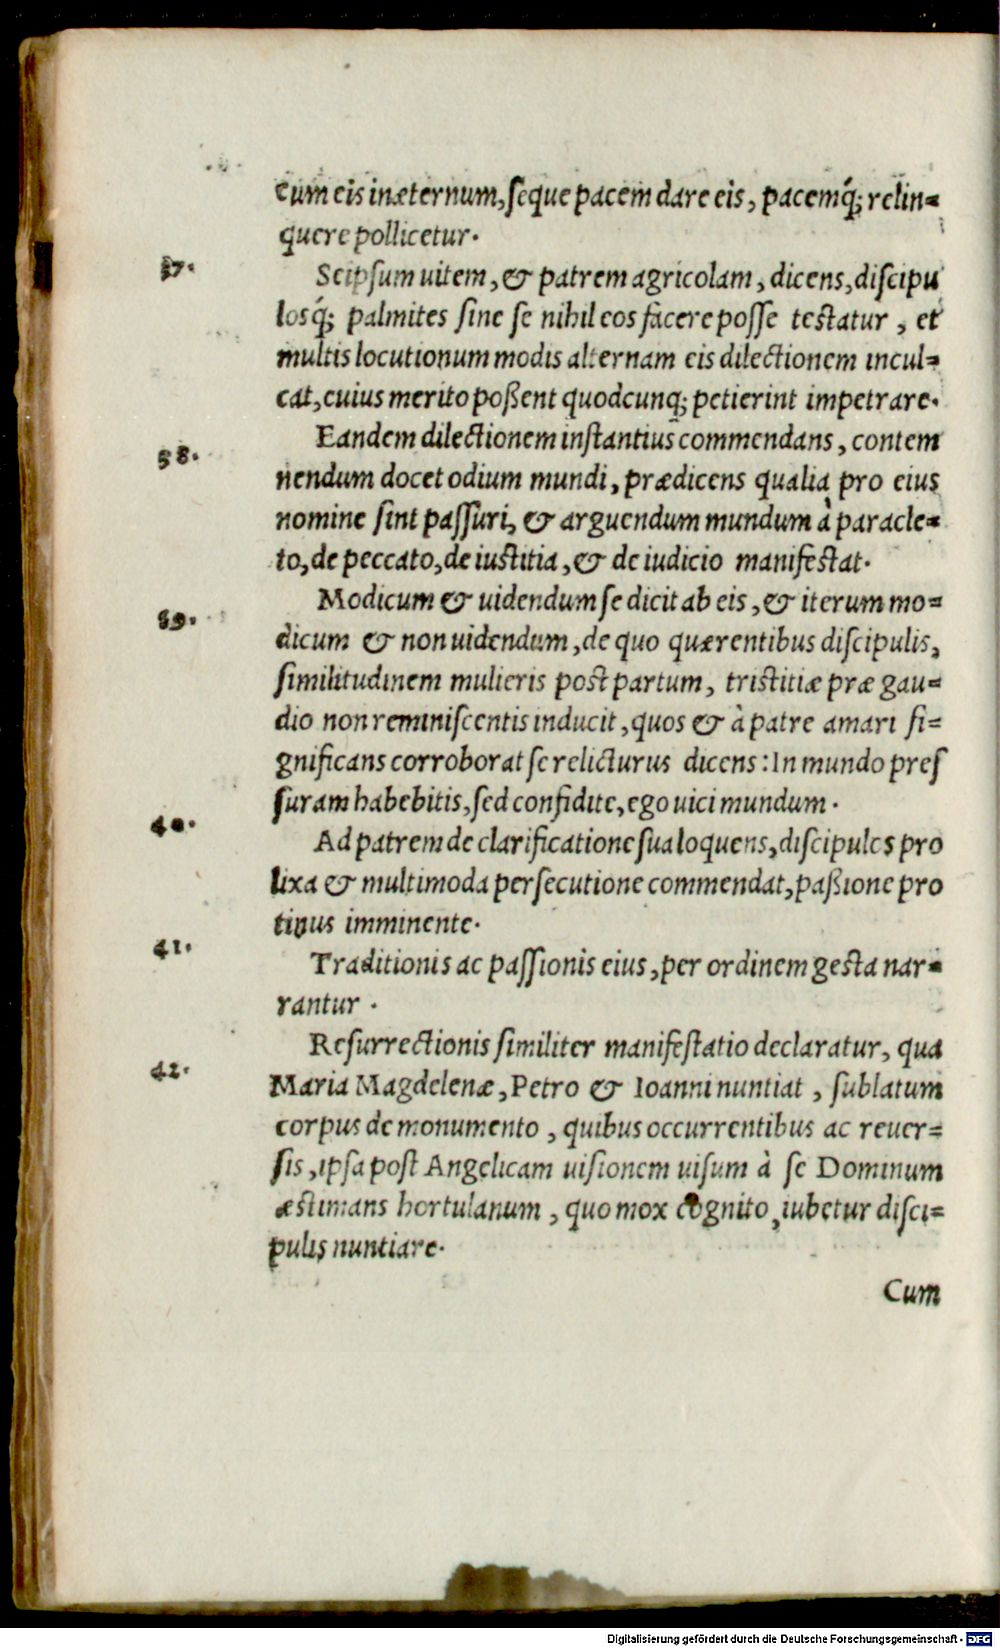 cum eis in æternum, seque pacem dare eis, pacemq́; relin=
quere pollicetur.
37.
Seipsum uitem, & patrem agricolam, dicens, discipu
losq́; palmites sine se nihil eos facere posse testatur, et
multis locutionum modis alternam eis dilectionem incul=
cat, cuius merito poßent quodcunq; petierint impetrare.
Eandem dilectionem instantius commendans, contem
38.
nendum docet odium mundi, prædicens qualia pro eius
nomine sint passuri, & arguendum mundum à paracle=
to, de peccato, de iustitia, & de iudicio manifestat.
Modicum & uidendum se dicit ab eis, & iterum mo=
39.
dicum & non uidendum, de quo quærentibus discipulis,
similitudinem mulieris post partum, tristitiæ præ gau=
dio non reminiscentis inducit, quos & à patre amari si=
gnificans corroborat se relicturus dicens: In mundo pres
suram habebitis, sed confidite, ego uici mundum.
40.
Ad patrem de clarificatione sua loquens, discipulos pro
lixa & multimoda persecutione commendat, paßione pro
tinus imminente.
41.
Traditionis ac passionis eius, per ordinem gesta nar=
rantur.
Resurrectionis similiter manifestatio declaratur, qua
42.
Maria Magdelenæ, Petro & Ioanni nuntiat, sublatum
corpus de monumento, quibus occurrentibus ac reuer=
sis, ipsa post Angelicam uisionem uisum à se Dominum
æstimans hortulanum, quo mox cognito, iubetur disci=
pulis nuntiare.
Cum
Digitalisierung gefördert durch die Deutsche Forschungsgemeinschaft - DFG